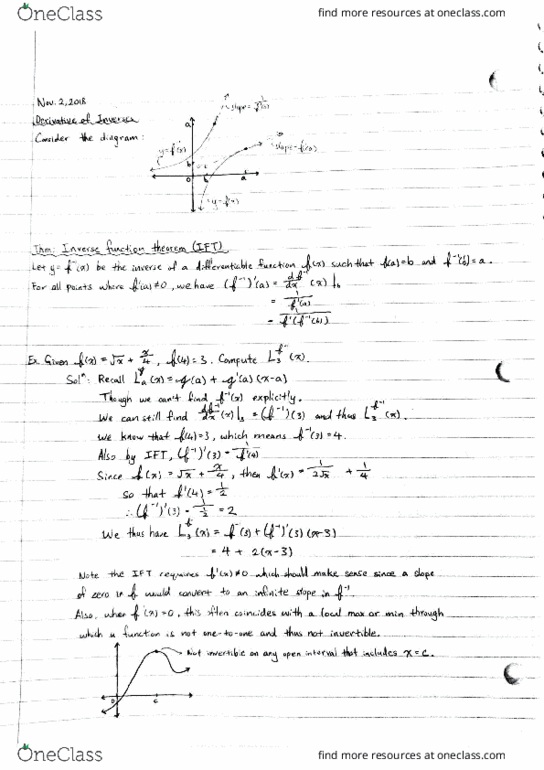 OneClass
find more resources at oneclass.com
Nov. 2, 2018
Derivative of Inverses
Consider the diagram:
y=f⁻¹(x)
a
b
0
b
a
y=f(x)
Thm: Inverse function theorem (IFT)
Let y=f⁻¹(x) be the inverse of a differentiable function f(x) such that f(a)=b and f⁻¹(b)=a.
For all points where f'(a)≠0, we have (f⁻¹)'(a) = df⁻¹/dx (x)|b
= 1/f'(a)
= 1/f'(f⁻¹(b))
Ex. Given f(x)=√x + x/4, f(4)=3. Compute L₃^f⁻¹(x).
Solⁿ: Recall Lₐ^f(x) = f(a) + f'(a)(x-a)
Though we can't find f⁻¹(x) explicitly.
We can still find df⁻¹/dx (x)|₃ = (f⁻¹)'(3) and thus L₃^f⁻¹(x).
We know that f(4)=3, which means f⁻¹(3)=4.
Also by IFT, (f⁻¹)'(3) = 1/f'(4)
Since f(x) = √x + x/4, then f'(x) = 1/2√x + 1/4
So that f'(4) = 1/2
∴ (f⁻¹)'(3) = 1/½ = 2
We thus have L₃^f⁻¹(x) = f⁻¹(3) + (f⁻¹)'(3)(x-3)
= 4 + 2(x-3)
Note the IFT requires f'(x)≠0 which should make sense since a slope
of zero in f would convert to an infinite slope in f⁻¹.
Also, when f'(x)=0, this often coincides with a local max or min through
which a function is not one-to-one and thus not invertible.
Not invertible on any open interval that includes x=c.
0
c
OneClass
find more resources at oneclass.com